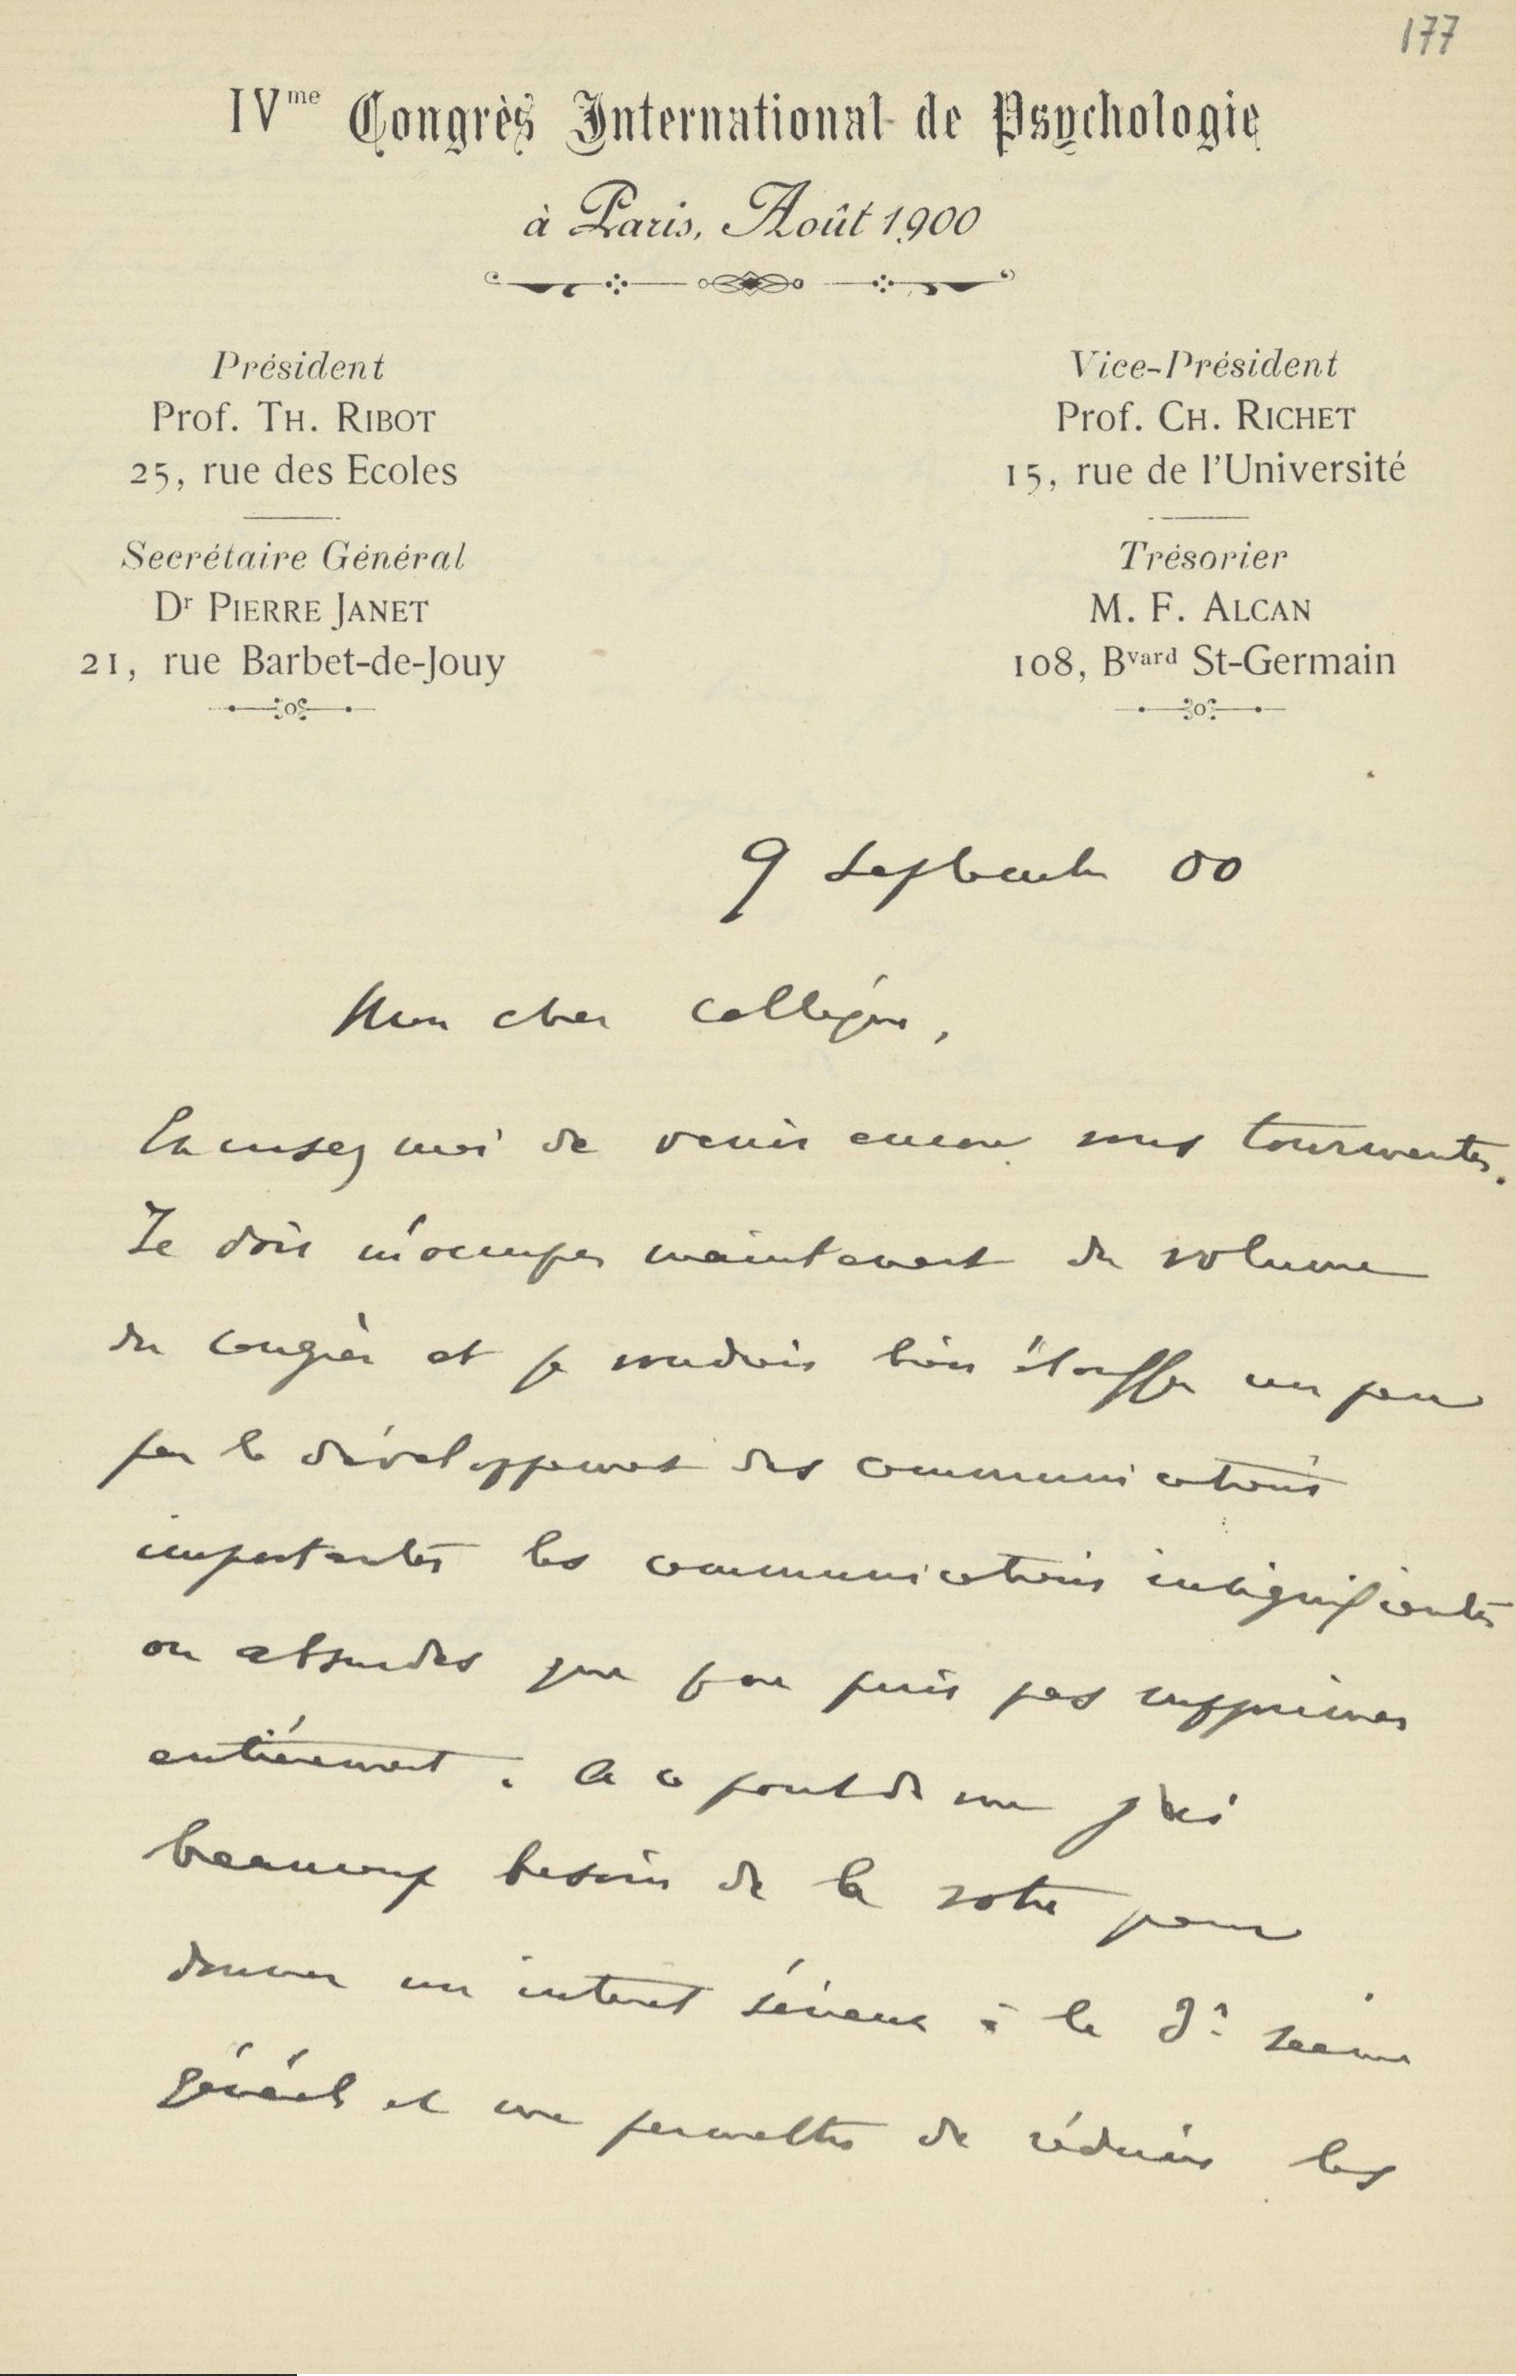 177
IVme Congrès International de Psychologie
à Paris, Août 1900
Président
Prof. TH. RIBOT
25, rue des Ecoles
Secrétaire Général
Dr PIERRE JANET
21, rue Barbet-de-Jouy
Vice-Président
Prof. CH. RICHET
15, rue de l'Université
Trésorier
M. F. ALCAN
108, Bvard St-Germain
9 Septembre 00
Mon cher collègue,
Excusez moi de venir encore vous tourmenter.
Je dois m'occuper maintenant du volume
du congrès et je voudrais bien étouffer un peu
par le développement des communications
importantes les communications insignifiantes
ou absurdes que je ne puis pas supprimer
entièrement. A ce point de vue j'ai
beaucoup besoin de la votre pour
donner un interet sérieux à la seance
générale et me permettre de réduire les